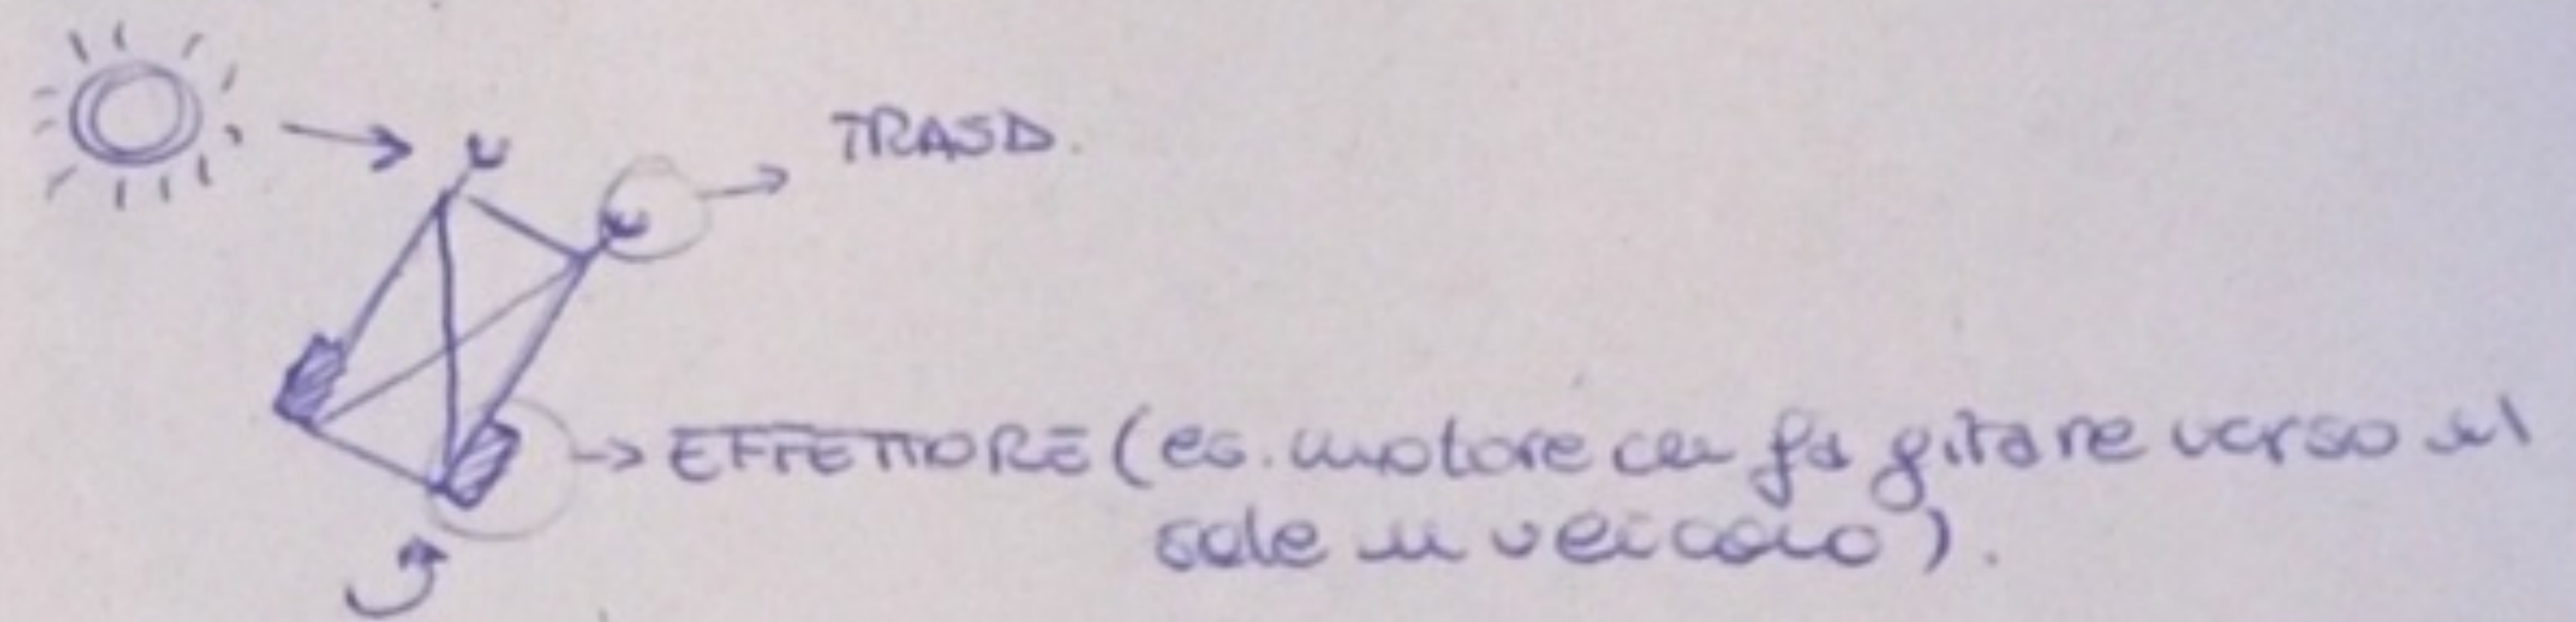 TRASD.
EFFETTORE (es. motore che fa girare verso il
sole il veicolo).